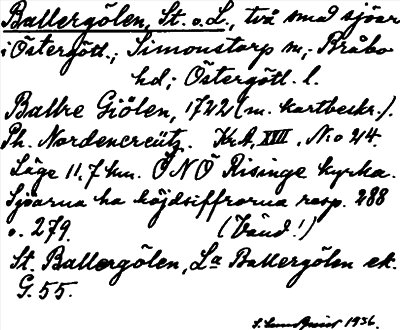 Ballergölen, St. o. L., två små sjöar
i Östergötl.; Simonstorp sn; Bråbo
hd; Östergötl. l.
Ballre Giölen, 1722 (m. kartbeskr.).
Ph. Nordencreütz. KrA, XVII, N:o 24.
Läge 11,7 km. ÖNÖ Risinge kyrka.
Sjöarna ha höjdsiffrorna resp. 288
o. 279. (Vänd!)
St. Ballergölen, La Ballergölen ek.
G. 55.
1936.